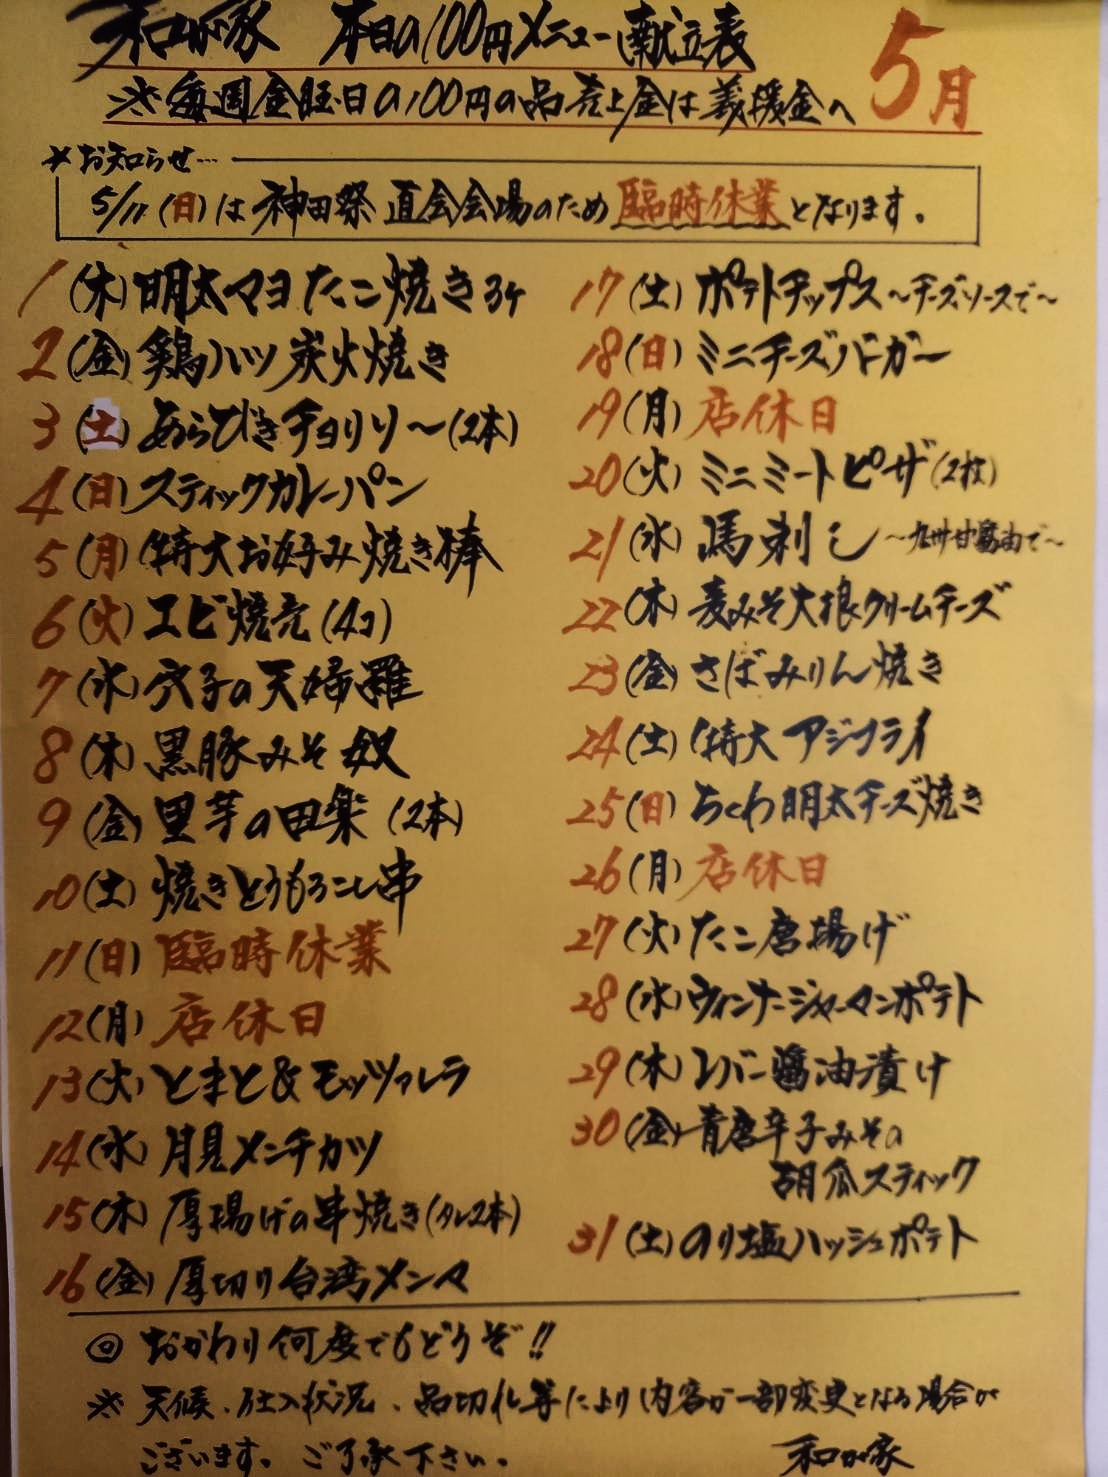 和が家 本日の100円メニュー献立表 5月
※毎週金曜日の100円の品売上金は義援金へ
*お知らせ…
5/11(日)は神田祭 直会会場のため臨時休業となります。
1(木)明太マヨたこ焼き3ケ
2(金)鶏ハツ炭火焼き
3(土)あらびきチョリソ〜(2本)
4(日)スティックカレーパン
5(月)特大お好み焼き棒
6(火)エビ焼売(4コ)
7(水)穴子の天婦羅
8(木)黒豚みそ奴
9(金)里芋の田楽(2本)
10(土)焼きとうもろこし串
11(日)臨時休業
12(月)店休日
13(火)とまと&モッツァレラ
14(水)月見メンチカツ
15(木)厚揚げの串焼き(タレ2本)
16(金)厚切り台湾メンマ
17(土)ポテトチップス〜チーズソースで〜
18(日)ミニチーズバーガー
19(月)店休日
20(火)ミニミートピザ(2枚)
21(水)馬刺し〜九州甘醤油で〜
22(木)麦みそ大根クリームチーズ
23(金)さばみりん焼き
24(土)特大アジフライ
25(日)ちくわ明太チーズ焼き
26(月)店休日
27(火)たこ唐揚げ
28(水)ウィンナージャーマンポテト
29(木)レバー醤油漬け
30(金)青唐辛子みその
胡瓜スティック
31(土)のり塩ハッシュポテト
◎おかわり何度でもどうぞ!!
※天候、仕入状況、品切れ等により内容が一部変更となる場合が
ございます。ご了承下さい。 和が家